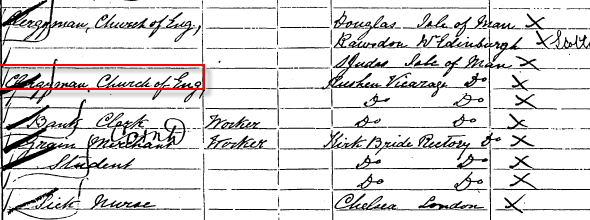 Clergyman, Church of Eng, Douglas Isle of Man X
Rawdon W Edinburgh X Scotl
St Judes Isle of Man X
Clergyman, Church of Eng, Rushen Vicarage Do X
Do Do X
Bank Clerk Worker Do Do X
Grain Merchant Worker Kirk Bride Rectory Do X
Student Do Do X
Do Do X
Sick Nurse Chelsea London X